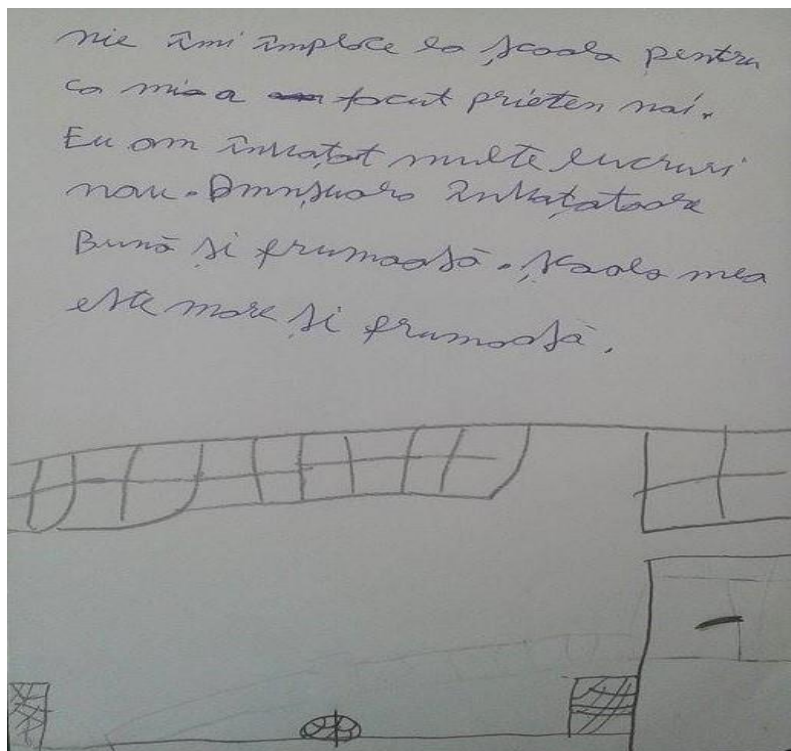 mie îmi împlace la școala pentru
ca mia facut prieten noi.
Eu am învațat multe lucruri
nou. Dmnșuara învațatoare
Bună și frumoasă. școala mea
este mare și frumoasă.